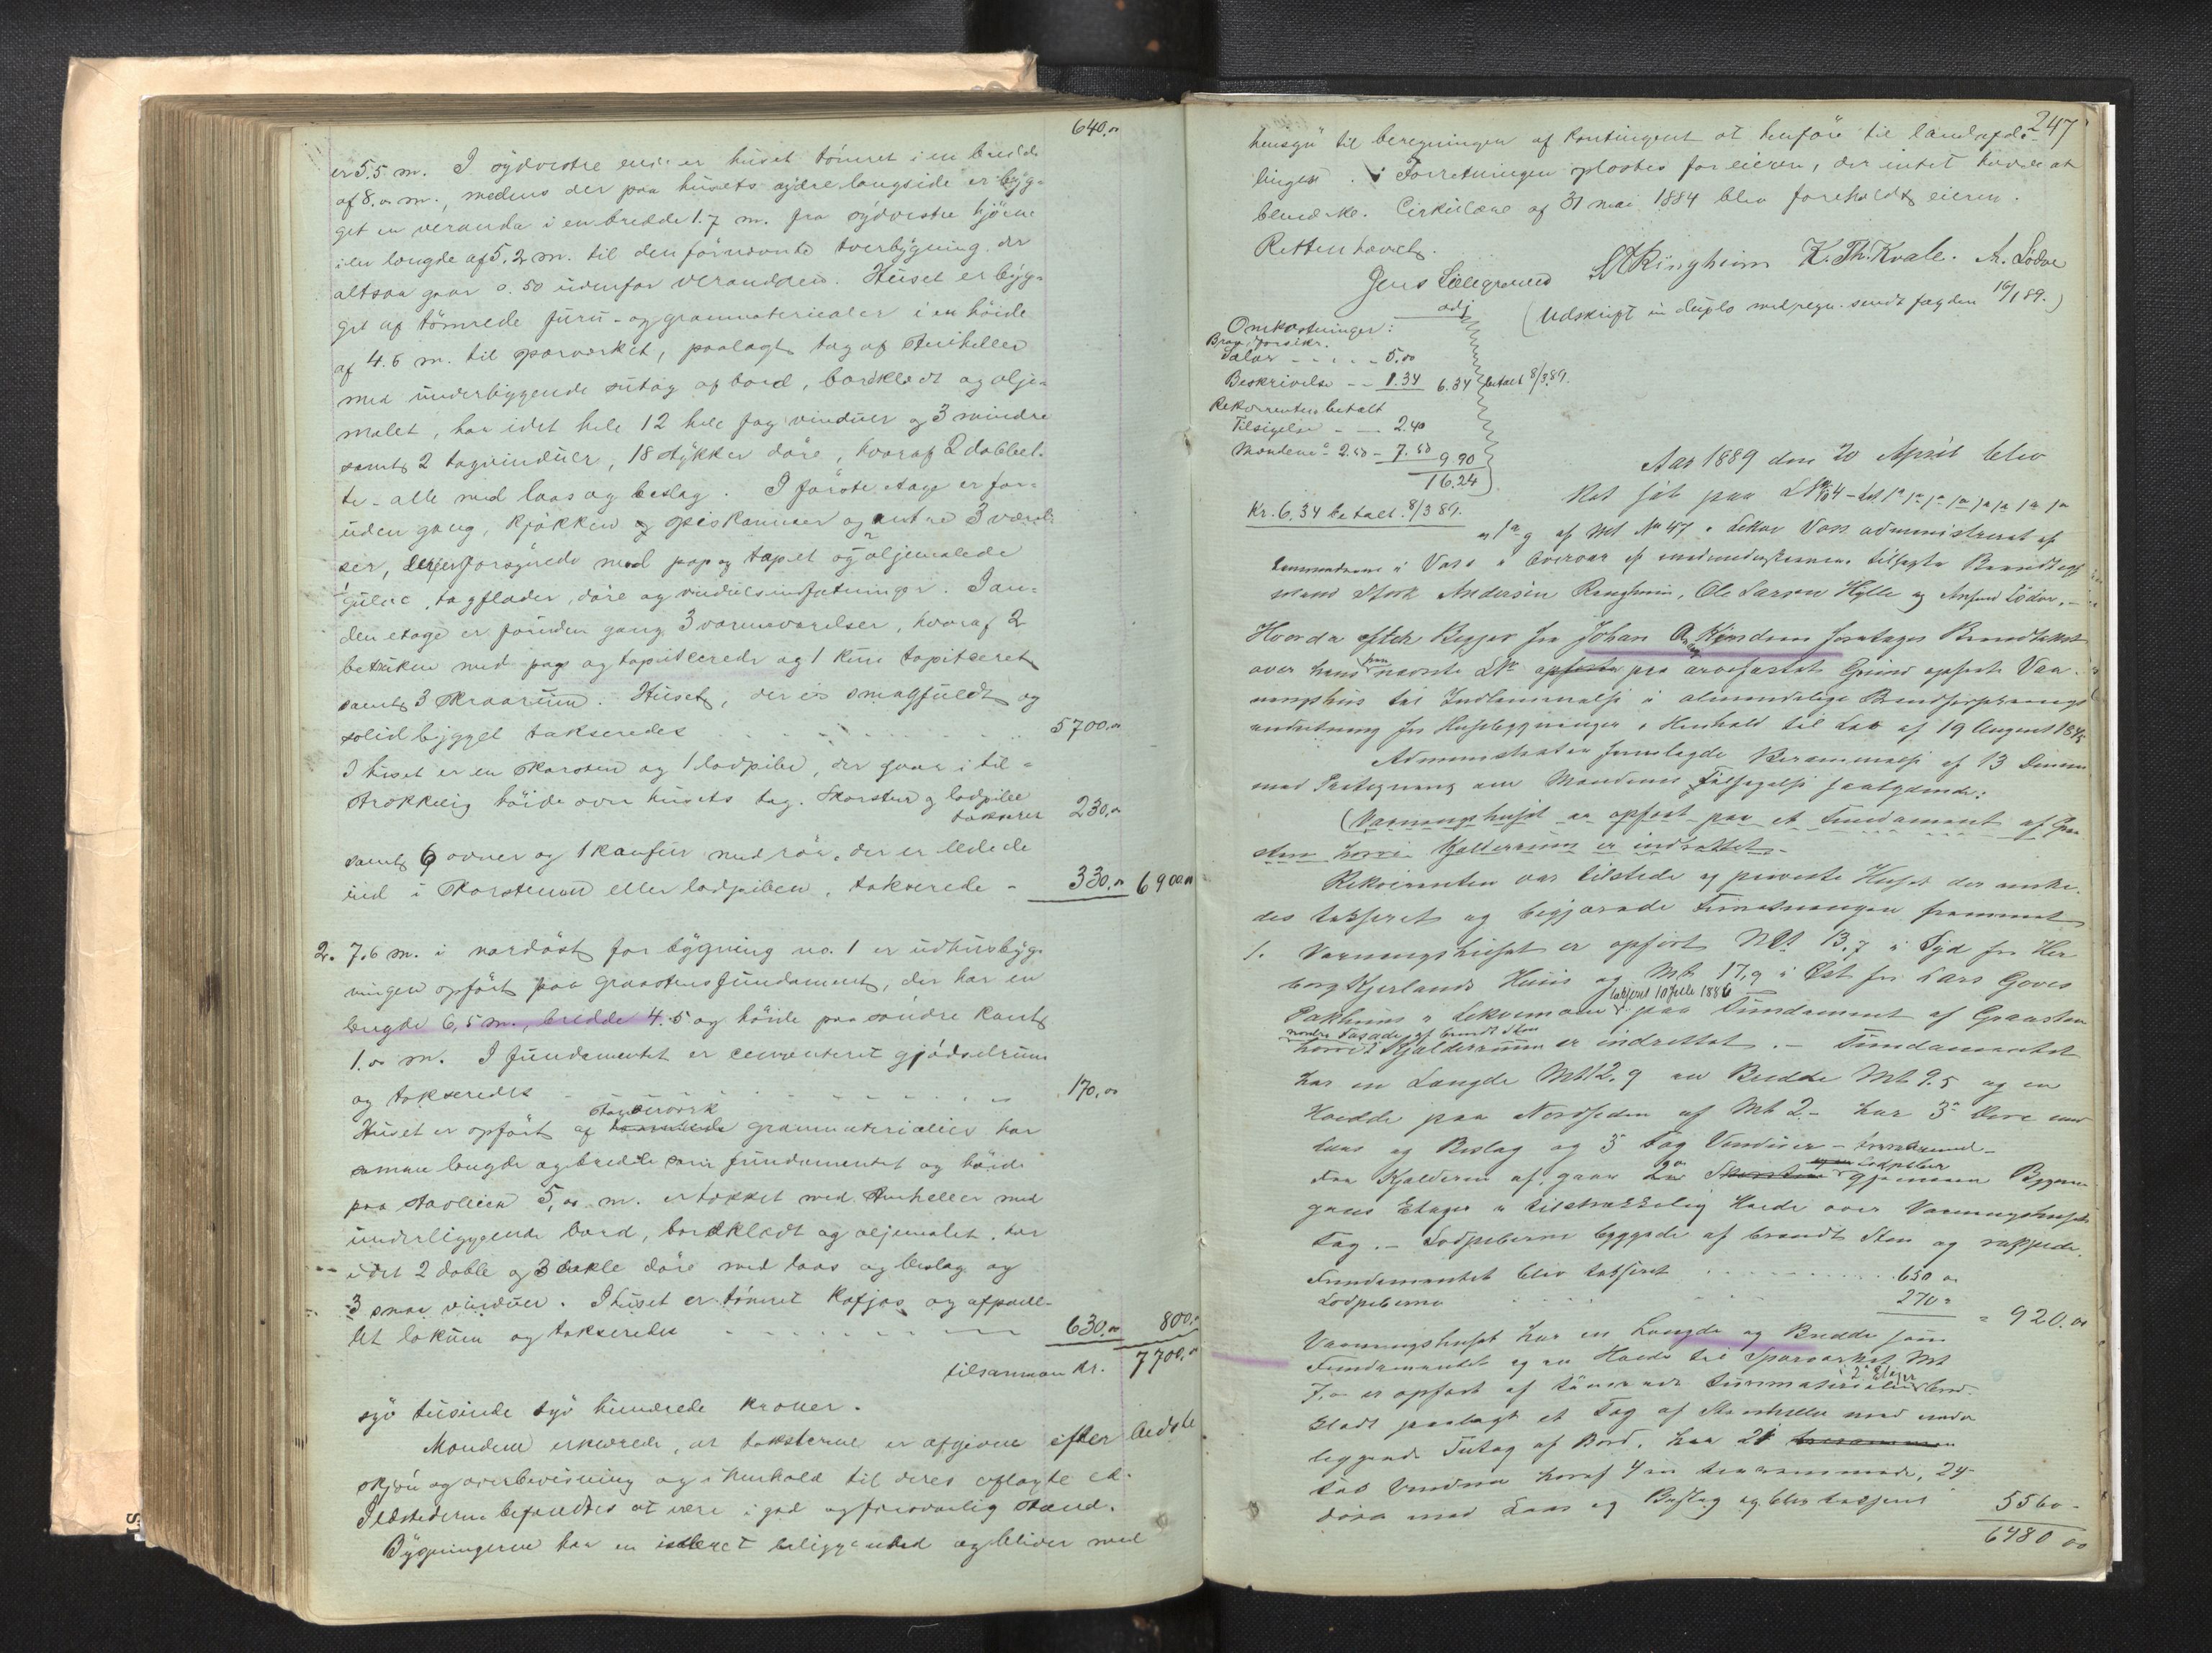 640.00
er 5.5 m. I sydvestre ende er huset tömret i en bredde
af 8.0 m., medens der paa husets sydre langside er byg-
get en veranda i en bredde 1.7 m. fra sydvestre hjörne
i en længde af 5.2 m. til den förnævnte tverbygning der
altsaa gaar 0.50 udenfor verandaen. Huset er byg-
get af tömrede furu- og granmaterialer i en höide
af 4.6 m. til sparværket, paalagt tag af Stenheller
med underliggende sutag af bord, bordklædt og olje-
malet, har i det hele 12 hele fag vinduer og 3 mindre
samt 2 tagvinduer, 18 stykker döre, hvoraf 2 dobbel-
te - alle med laas og beslag. I förste etage er for-
uden gang, kjökken og spiskammer og andre 3 værel-
ser, forsynede med pap og tapet og oljemalede
gulve, tagflader, döre og vinduesindfatninger. I an-
den etage er foruden gang 3 værelser, hvoraf 2
betrukne med pap og tapitserede og 1 kun tapitseret
samt 3 Skraarum. Huset, der er smagfuldt og
solid bygget takseredes 5700.00
I huset er en Skorsten og 1 lodpibe, der gaar i til-
strækkelig höide over husets tag. Skorsten og lodpibe
takseres 230.00
samt 6 ovner og 1 komfur med rör, der er ledede
ind i Skorstenen eller lodpiben, takserede - 330.00 6900.00
2. 7.6 m. i nordöst for bygning no. 1 er udhusbyg-
ningen opfört paa graastensfundament, der har en
længde 6,5 m., bredde 4.5 og höide paa söndre kant
1.00 m. I fundamentet er cementeret gjödselrum
og takseredes 170.00
Stavværk
Huset er opfört af granmaterialier har
samme længde og bredde som fundamentet og höide
paa stavlien 5,00 m. er tækket med Stenheller med
underliggende bord, bordklædt og oljemalet, har
i det 2 doble og 3 enkle döre med laas og beslag og
3 smaa vinduer. I huset er tömret kofjös og afpanel-
let lokum og takseredes 630.00 800.00
tilsammen Kr. 7700.00
syv tusinde syv hundrede kroner.
Mændene erklærede, at taksterne er afgivne efter bedste
skjön og overbevisning og i henhold til deres aflagte ed.
Ildstederne befandtes at være i god og forsvarlig stand.
Bygningerne har en isoleret beliggenhed og bliver med
247
hensyn til beregningen af kontingent at henföre til landafde-
lingen. Forretningen oplæstes for eieren, der intet havde at
bemærke. Cirkulære af 31 mai 1884 blev foreholdt eieren.
Retten hævet.
Jens Lælegraven S A Ringheim K. Th. Kvale. A. Lödve
(Udskrift in duplo med regn. sendt fogden 19/1 89.)
Omkostninger:
Brandforsikr.
Salær - - - - - 5.00
Beskrivelse - - 1.34 6.34 betalt 8/3 89.
Rekvirenten betalt
Tilsigelse - - 2.40
Mændene à 2.50 - 7.50 9.90
16.24
Kr. 6.34 betalt 8/3 89.
Aar 1889 den 20 April blev
Ret sat paa
af Mt No 47. Lekve Voss administreret af
Lensmanden i Voss i Overvær af undertegnede tilsagte Brandtaxt
mænd Styrk Andersen Ringheim, Ole Larsen Hylle og Anfind Lödve, -
Hvorda efter Begjær fra Johan foretages Brandtakst
over hans nævnte LNo paa arvefæstet Grund opførte Vaa-
ningshus til Indlemmelse i almindelige Brandforsikrings
indretning for Husebygninger i Henhold til Lov af 19 August 1845
Administrator fremlagde Berammelse af 13 Dennes
med Paategning om Mændenes Tilsigelse saalydende:
(Vaaningshuset er opført paa et Fundament af Graa-
sten hvori Kjelderrum er indrettet.
Rekvirenten var tilstede og paaviste Huset der ønske-
des takseret og begjærede Forretningen fremmet
1. Vaaningshuset er opført Mt 13,7 i Syd fra Her
borg Kjerlands Huus og Mt 17,9 i Øst fra Lars Goves
takseret 10 Juli 1886
Pakhuus i Lekvemoen paa Fundament af Graasten
nordre Fasade af brændt Sten
hvori Kjelderrum er indrettet. - Fundamentet
har en Længde Mt 12.9 en Bredde Mt 9.5 og en
Hoide paa Nordsiden af Mt 2.- har 3 Døre med
Laas og Beslag og 3 Fag Vinduer -
Fra Kjelderen af gaar 2 Lodpiber gjennem Bygnin-
gens Etager i tilstrækkelig Høide over Vaaningshusets
Tag. - Lodpiberne byggede af brændt Sten og rappede.
Fundamentet blev takseret 650 00
Lodpiberne 270 = 920.00
Vaaningshuset har en Længde og Bredde som
Fundamentet og en Høide til Sparværket Mt
7,00 er opført af tømrede Furumaterialier i 2 Etager bord-
klædt paalagt et Tag af Stenheller med under
liggende Sutag af Bord, har 21
Fag Vinduer hvoraf 4 ere, 24
døre med Laas og Beslag og blev takseret 5560 -
6480 00